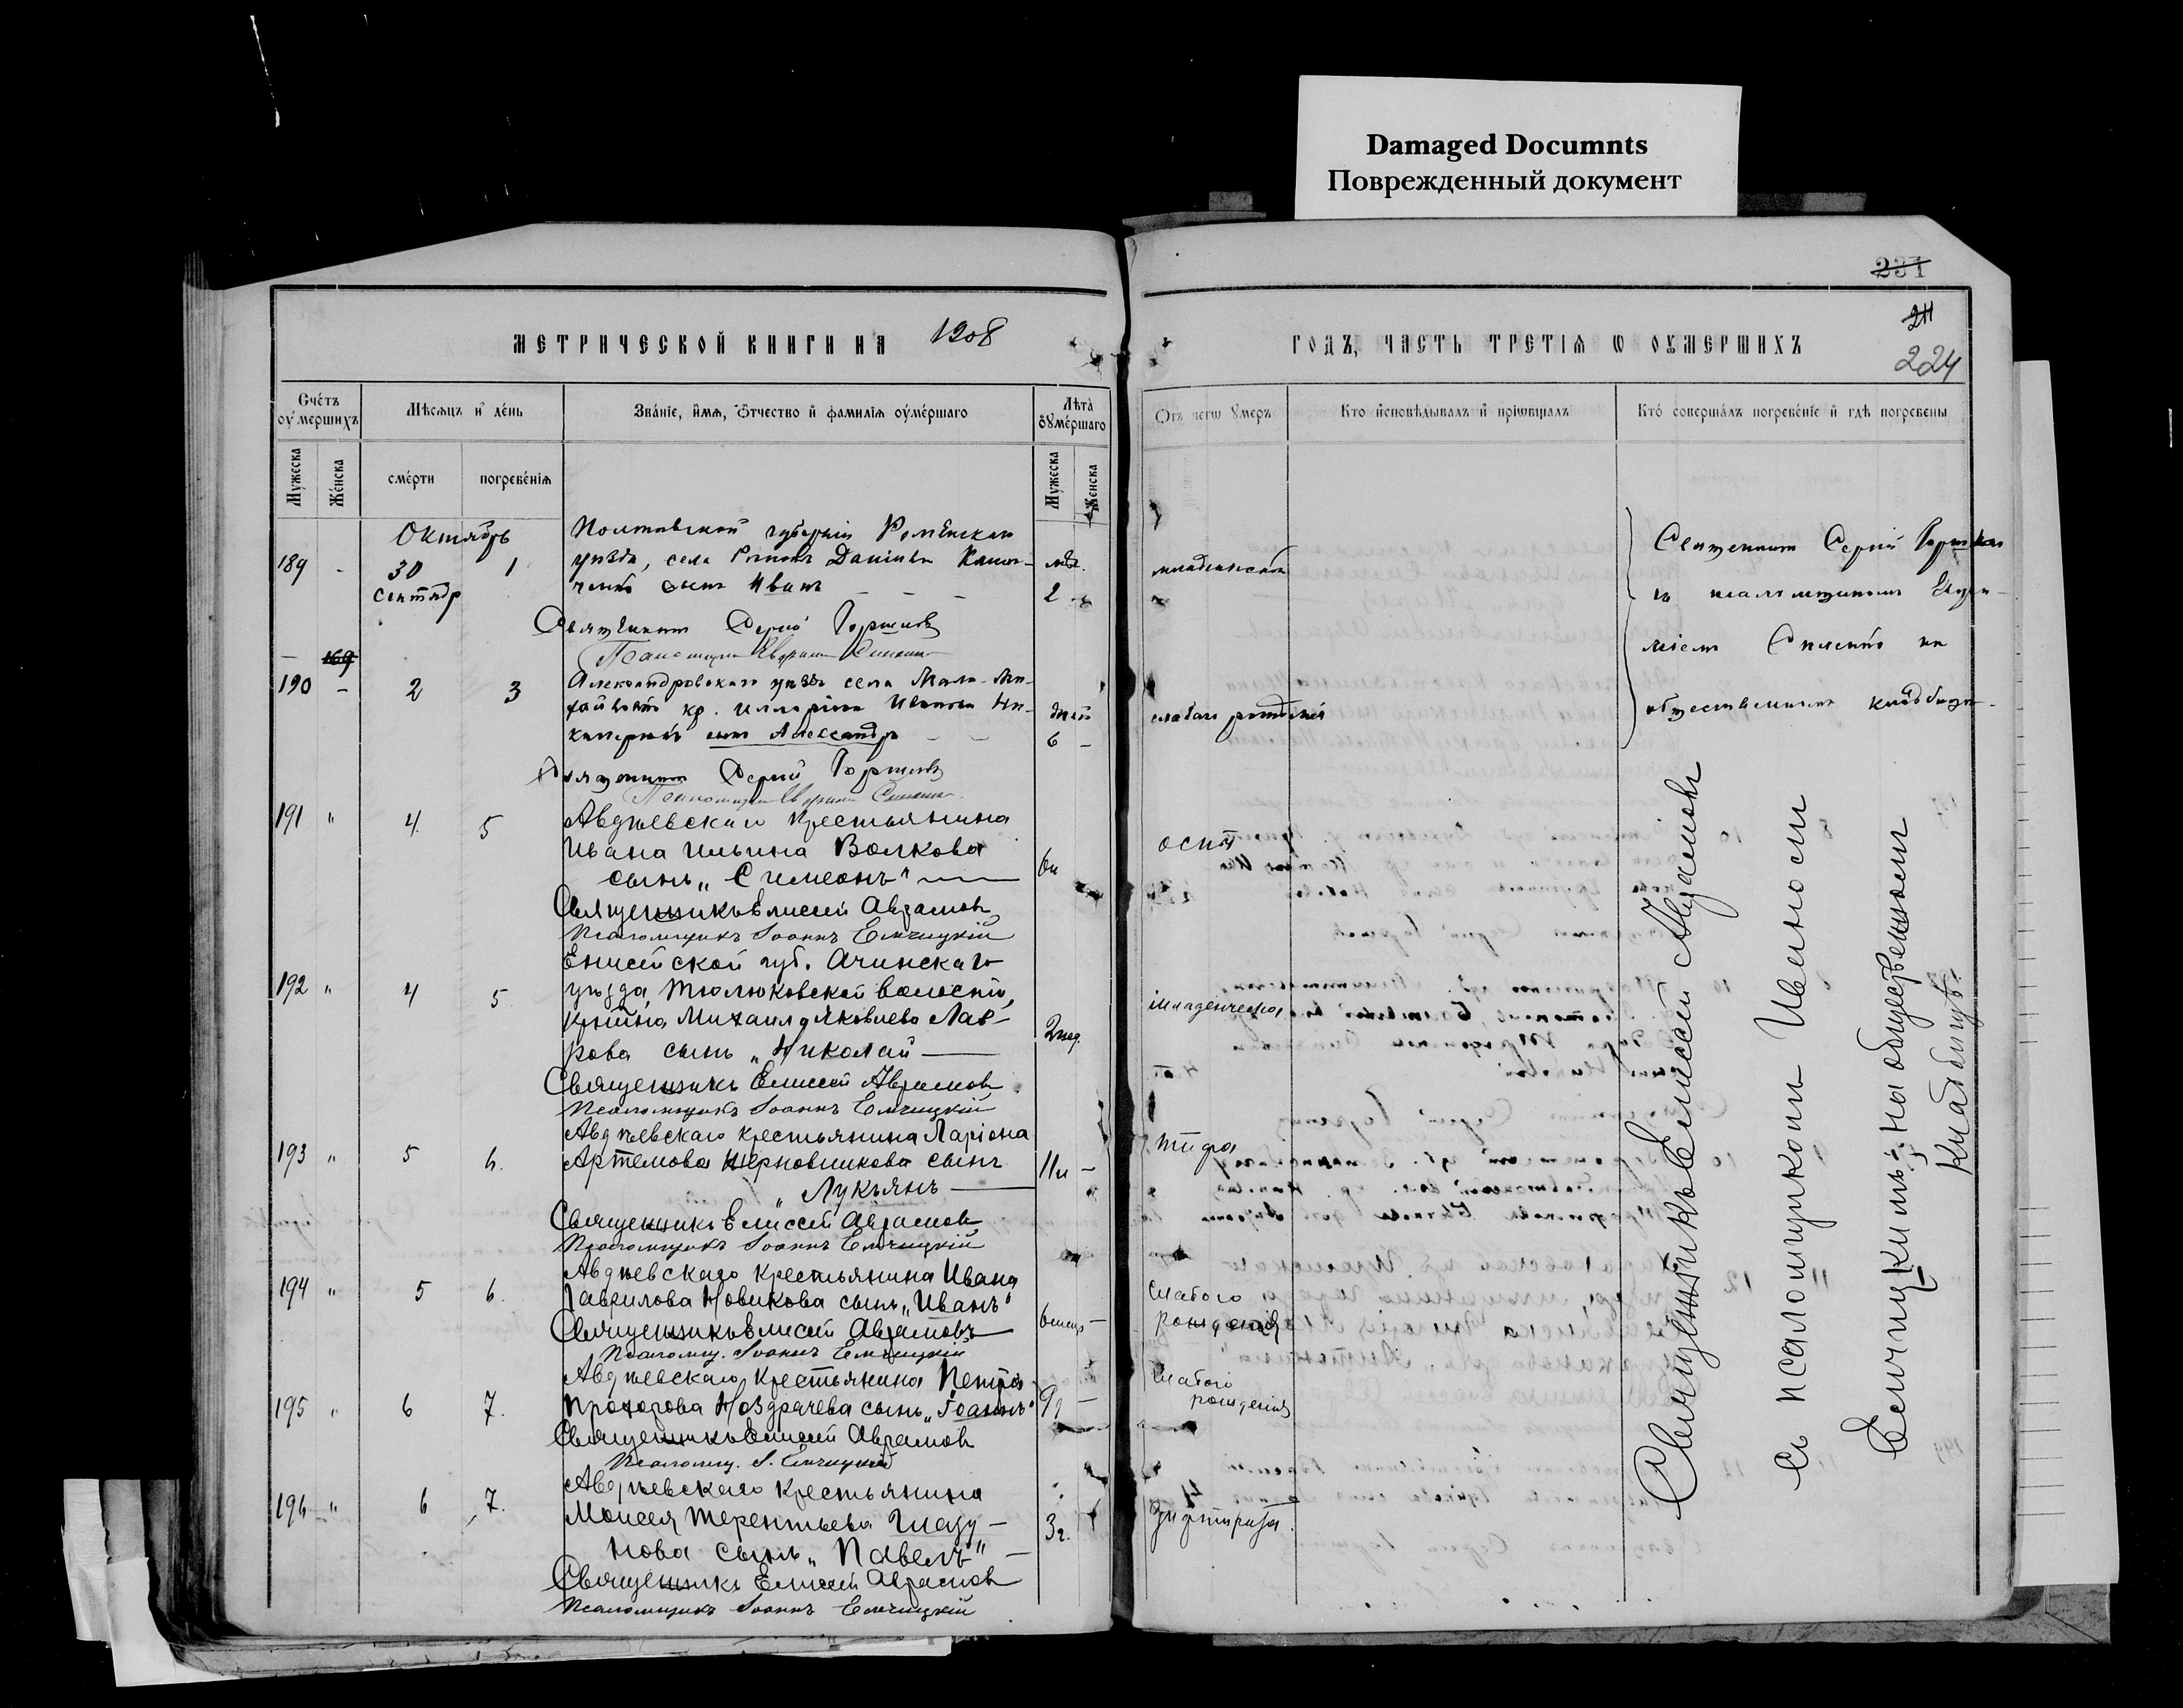 Damaged Documnts
Поврежденный документ
231
МЕТРИЧЕСКОЙ КНИГИ НА 1908
ГОДЪ, ЧАСТЬ ТРЕТІѦ Ѡ ОУМЕРШИХЪ
211
224
Счетъ оумершихъ
Мѣсяцъ и день
Званіе, имя, отчество и фамилія оумершаго
Лѣта оумершаго
Отъ чегѡ умеръ
Кто исповѣдывалъ и пріѡбщалъ
Кто совершалъ погребеніе и гдѣ погребены
Мужеска
Женска
смерти
погребенія
Мужеска
Женска
Октябрь
Полтавской губерніи Роменскаго
189 - 30 1 уѣзда, села
Сентябр
сынъ Иванъ
2
Священникъ Сергій
Псаломщикъ
169
190 - 2 3 Александровскаго уѣзда села Мало-Ми-
кр. Иларіона Иванова
сынъ Александръ
дней
6 -
слабаго рожденія
Священникъ Сергій
Псаломщикъ
Священникъ Сергій
съ псаломщикомъ
на
общественномъ кладбищѣ
191 " 4 5 Авдѣевскаго крестьянина
Ивана Ильина Волкова
сынъ „Симеонъ"
оспы
Священникъ Елисей Авраамовъ
Псаломщикъ Іоаннъ Емчицкій
Енисейской губ. Ачинскаго
192 " 4 5 уѣзда, Тюлюковской волости,
кр-нина Михаила Яковлева Лав-
рова сынъ „Николай
2 нед.
младенческая
Священникъ Елисей Авраамовъ
Псаломщикъ Іоаннъ Емчицкій
Авдѣевскаго крестьянина Ларіона
193 " 5 6. Артемова сынъ
„Лукьянъ
11 м -
тифа
Священникъ Елисей Авраамовъ
Псаломщикъ Іоаннъ Емчицкій
Авдѣевскаго крестьянина Ивана
194 " 5 6. Гаврилова Новикова сынъ „Иванъ"
слабого
рожденія
Священникъ Елисей Авраамовъ
Псаломщ. Іоаннъ Емчицкій
Авдѣевскаго крестьянина Петра
195 " 6 7. Прохорова Ноздрачева сынъ „Іоаннъ"
9 д -
слабого
рожденія
Священникъ Елисей Авраамовъ
Псаломщ. І. Емчицкій
Авдѣевскаго крестьянина
196 " 6 7. Моисея Терентьева Глазу-
нова сынъ „Павелъ" -
3 г.
дифтрита.
Священникъ Елисей Авраамовъ
Псаломщикъ Іоаннъ Емчицкій
Священникъ Елисей Авраамовъ
съ псаломщикомъ
Емчицкимъ; На общественномъ
кладбищѣ.